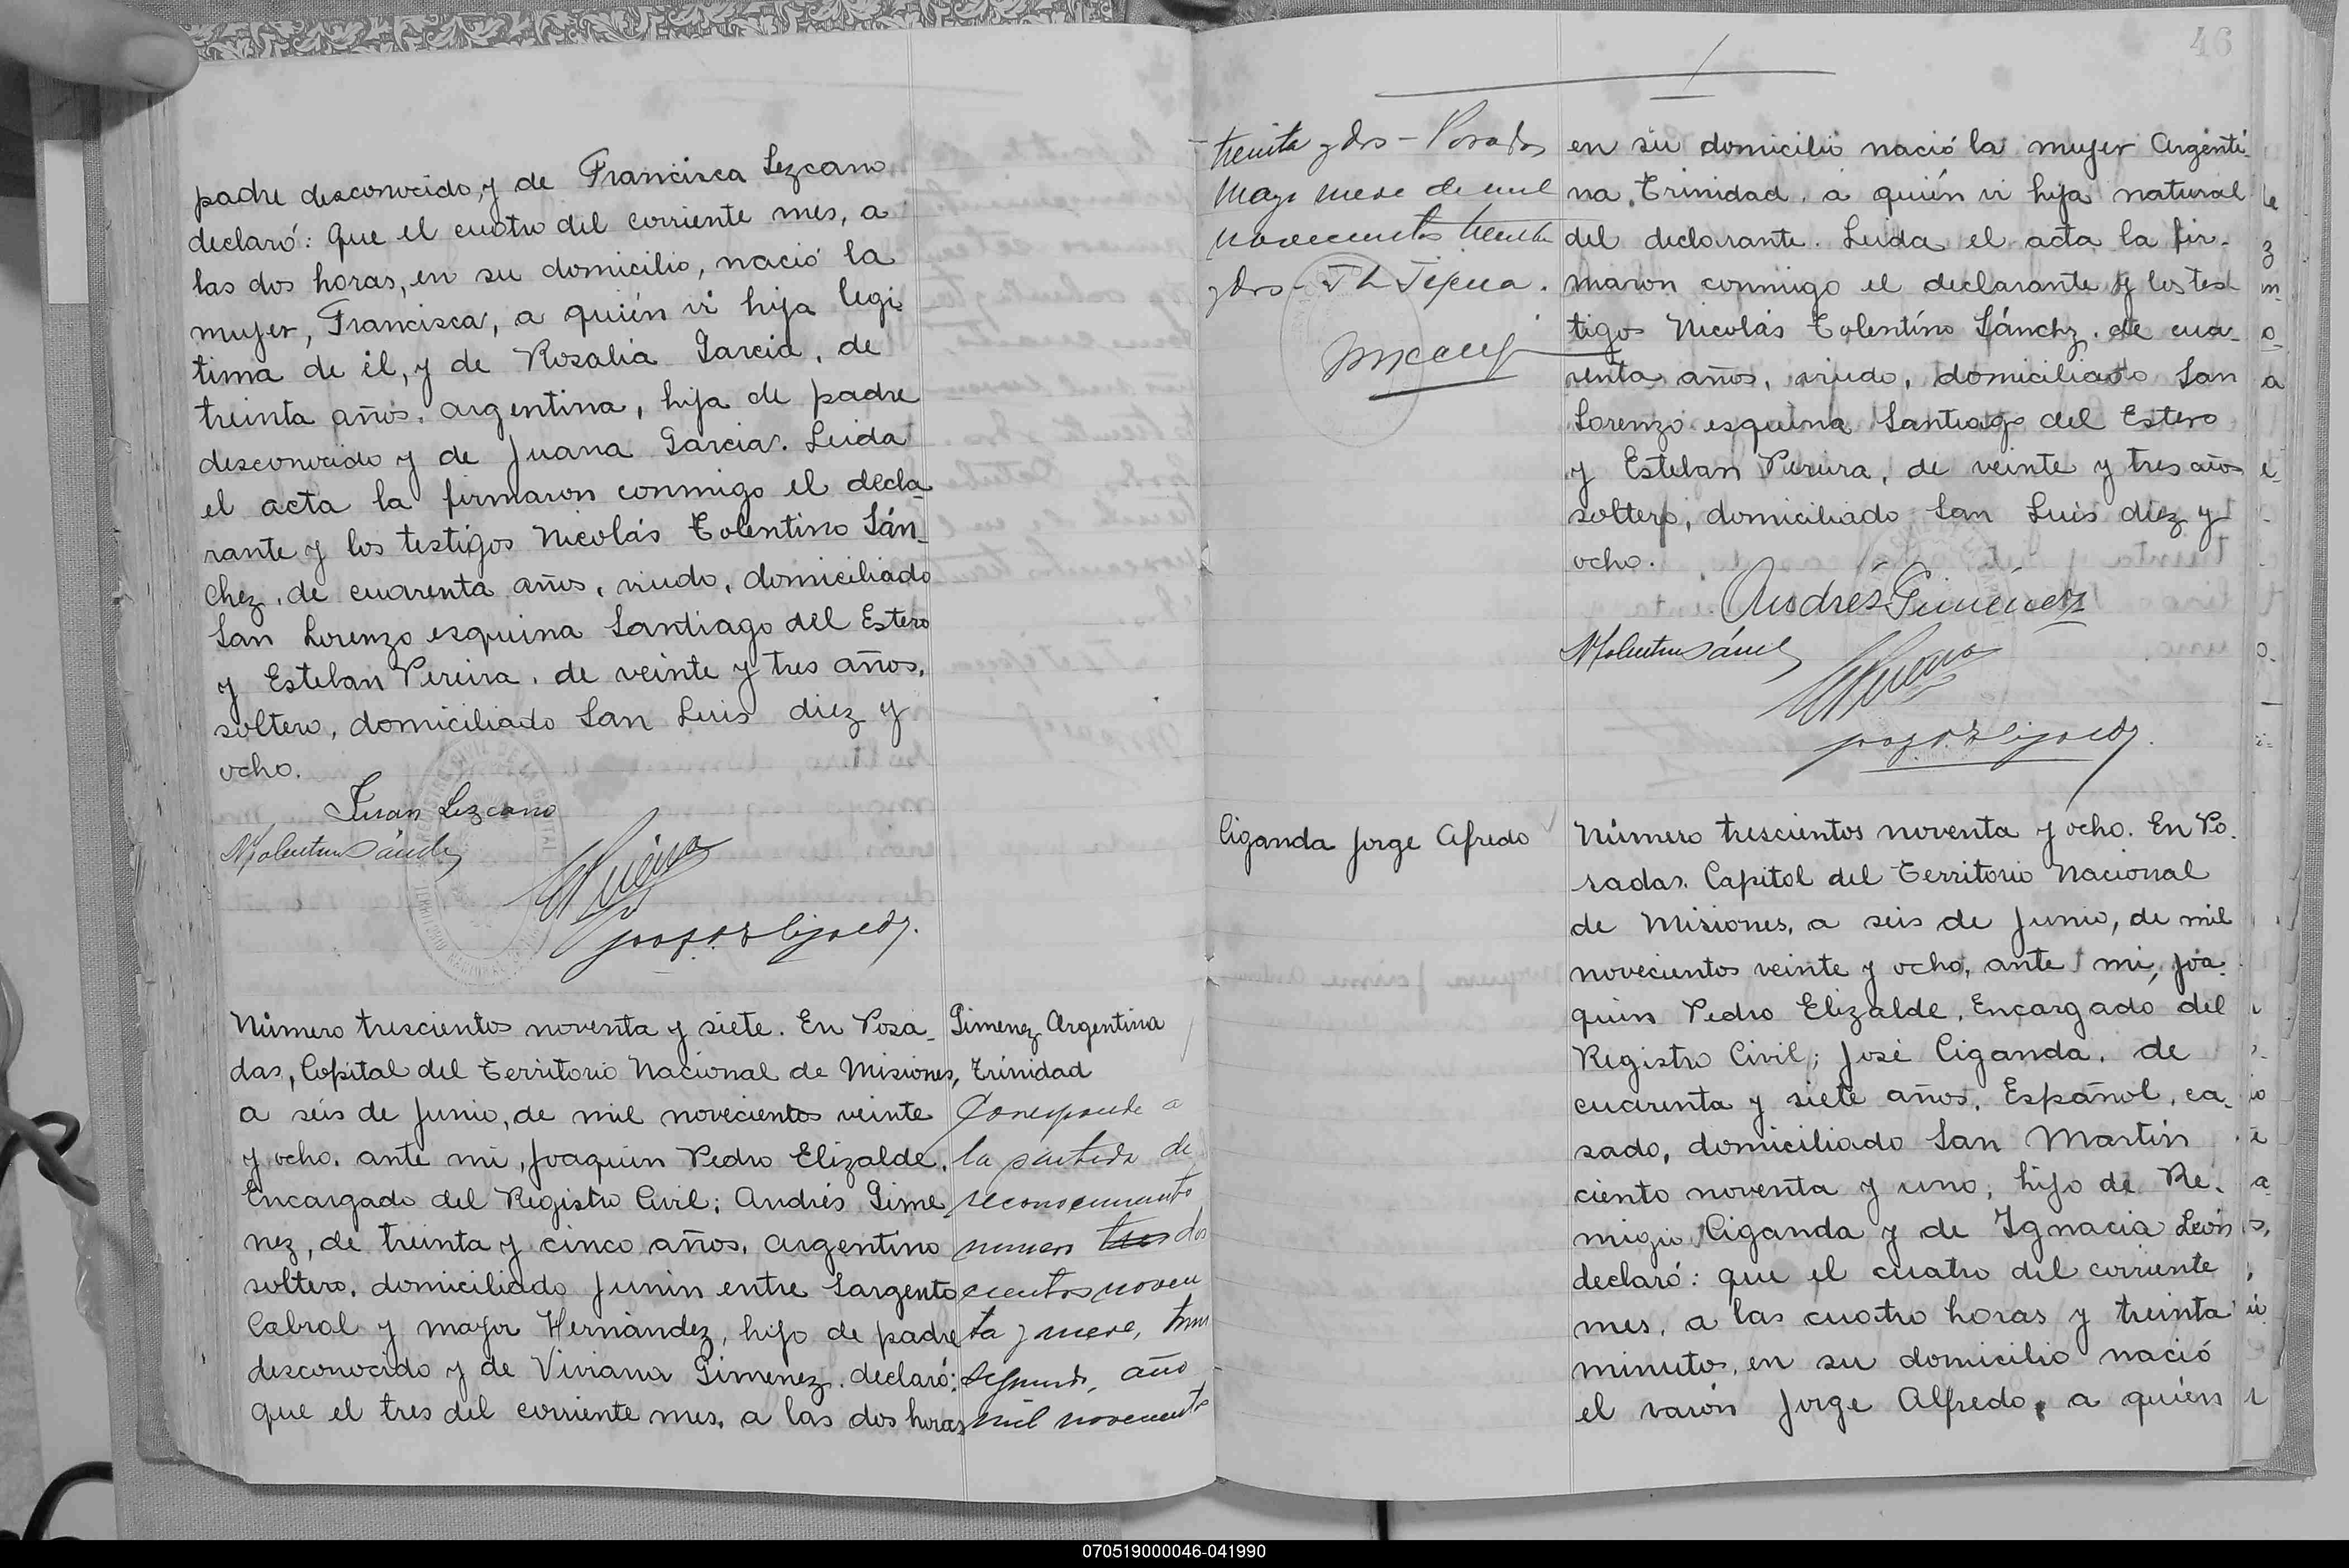 padre desconocido, y de Francisca Lezcano
declaró: Que el cuatro del corriente mes, a
las dos horas, en su domicilio, nació la
mujer, Francisca, a quién ví hija legi-
tima de él, y de Rosalia Garcia, de
treinta años, argentina, hija de padre
desconocido y de Juana Garcia. Leida
el acta la firmaron conmigo el decla-
rante y los testigos Nicolás Tolentino Sán-
chez, de cuarenta años, viudo, domiciliado
San Lorenzo esquina Santiago del Estero
y Esteban Pereira, de veinte y tres años,
soltero, domiciliado San Luis diez y
ocho.
Juan Lezcano
Número trescientos noventa y siete. En Posa-
das, Capital del Territorio Nacional de Misiones,
a seis de Junio, de mil novecientos veinte
y ocho, ante mi, Joaquin Pedro Elizalde,
Encargado del Registro Civil; Andrés Gime
nez, de treinta y cinco años, argentino
soltero, domiciliado Junin entre Sargento
Cabral y mayor Hernández, hijo de padre
desconocido y de Viviana Gimenez, declaró:
que el tres del corriente mes, a las dos horas
Gimenez Argentina
Trinidad
Corresponde a
la partida de
reconocimiento
numero tres dos
cientos noven
ta y nueve, tomo
segundo, año
mil novecientos
46
treinta y dos - Posadas
Mayo nueve de mil
novecientos treinta
y dos -
en su domicilio nació la mujer Argenti-
na Trinidad, a quién ví hija natural
del declarante. Leida el acta la fir-
maron conmigo el declarante y los tes
tigos Nicolás Tolentino Sánchz, de cua-
renta años, viudo, domiciliado San
Lorenzo esquina Santiago del Estero
y Esteban Pereira, de veinte y tres años
soltero, domiciliado San Luis diez y
ocho.
Andrés Gimenez
Ciganda Jorge Afredo
Número trescientos noventa y ocho. En Po-
sadas, Capital del Territorio Nacional
de Misiones, a seis de Junio, de mil
novecientos veinte y ocho, ante mi, Joa-
quin Pedro Elizalde, Encargado del
Registro Civil; José Ciganda, de
cuarenta y siete años, Español, ca-
sado, domiciliado San Martin
ciento noventa y uno, hijo de Re-
migio Ciganda y de Ignacia León
declaró: que el cuatro del corriente
mes, a las cuatro horas y treinta
minutos, en su domicilio nació
el varón Jorge Alfredo, a quién
070519000046-041990